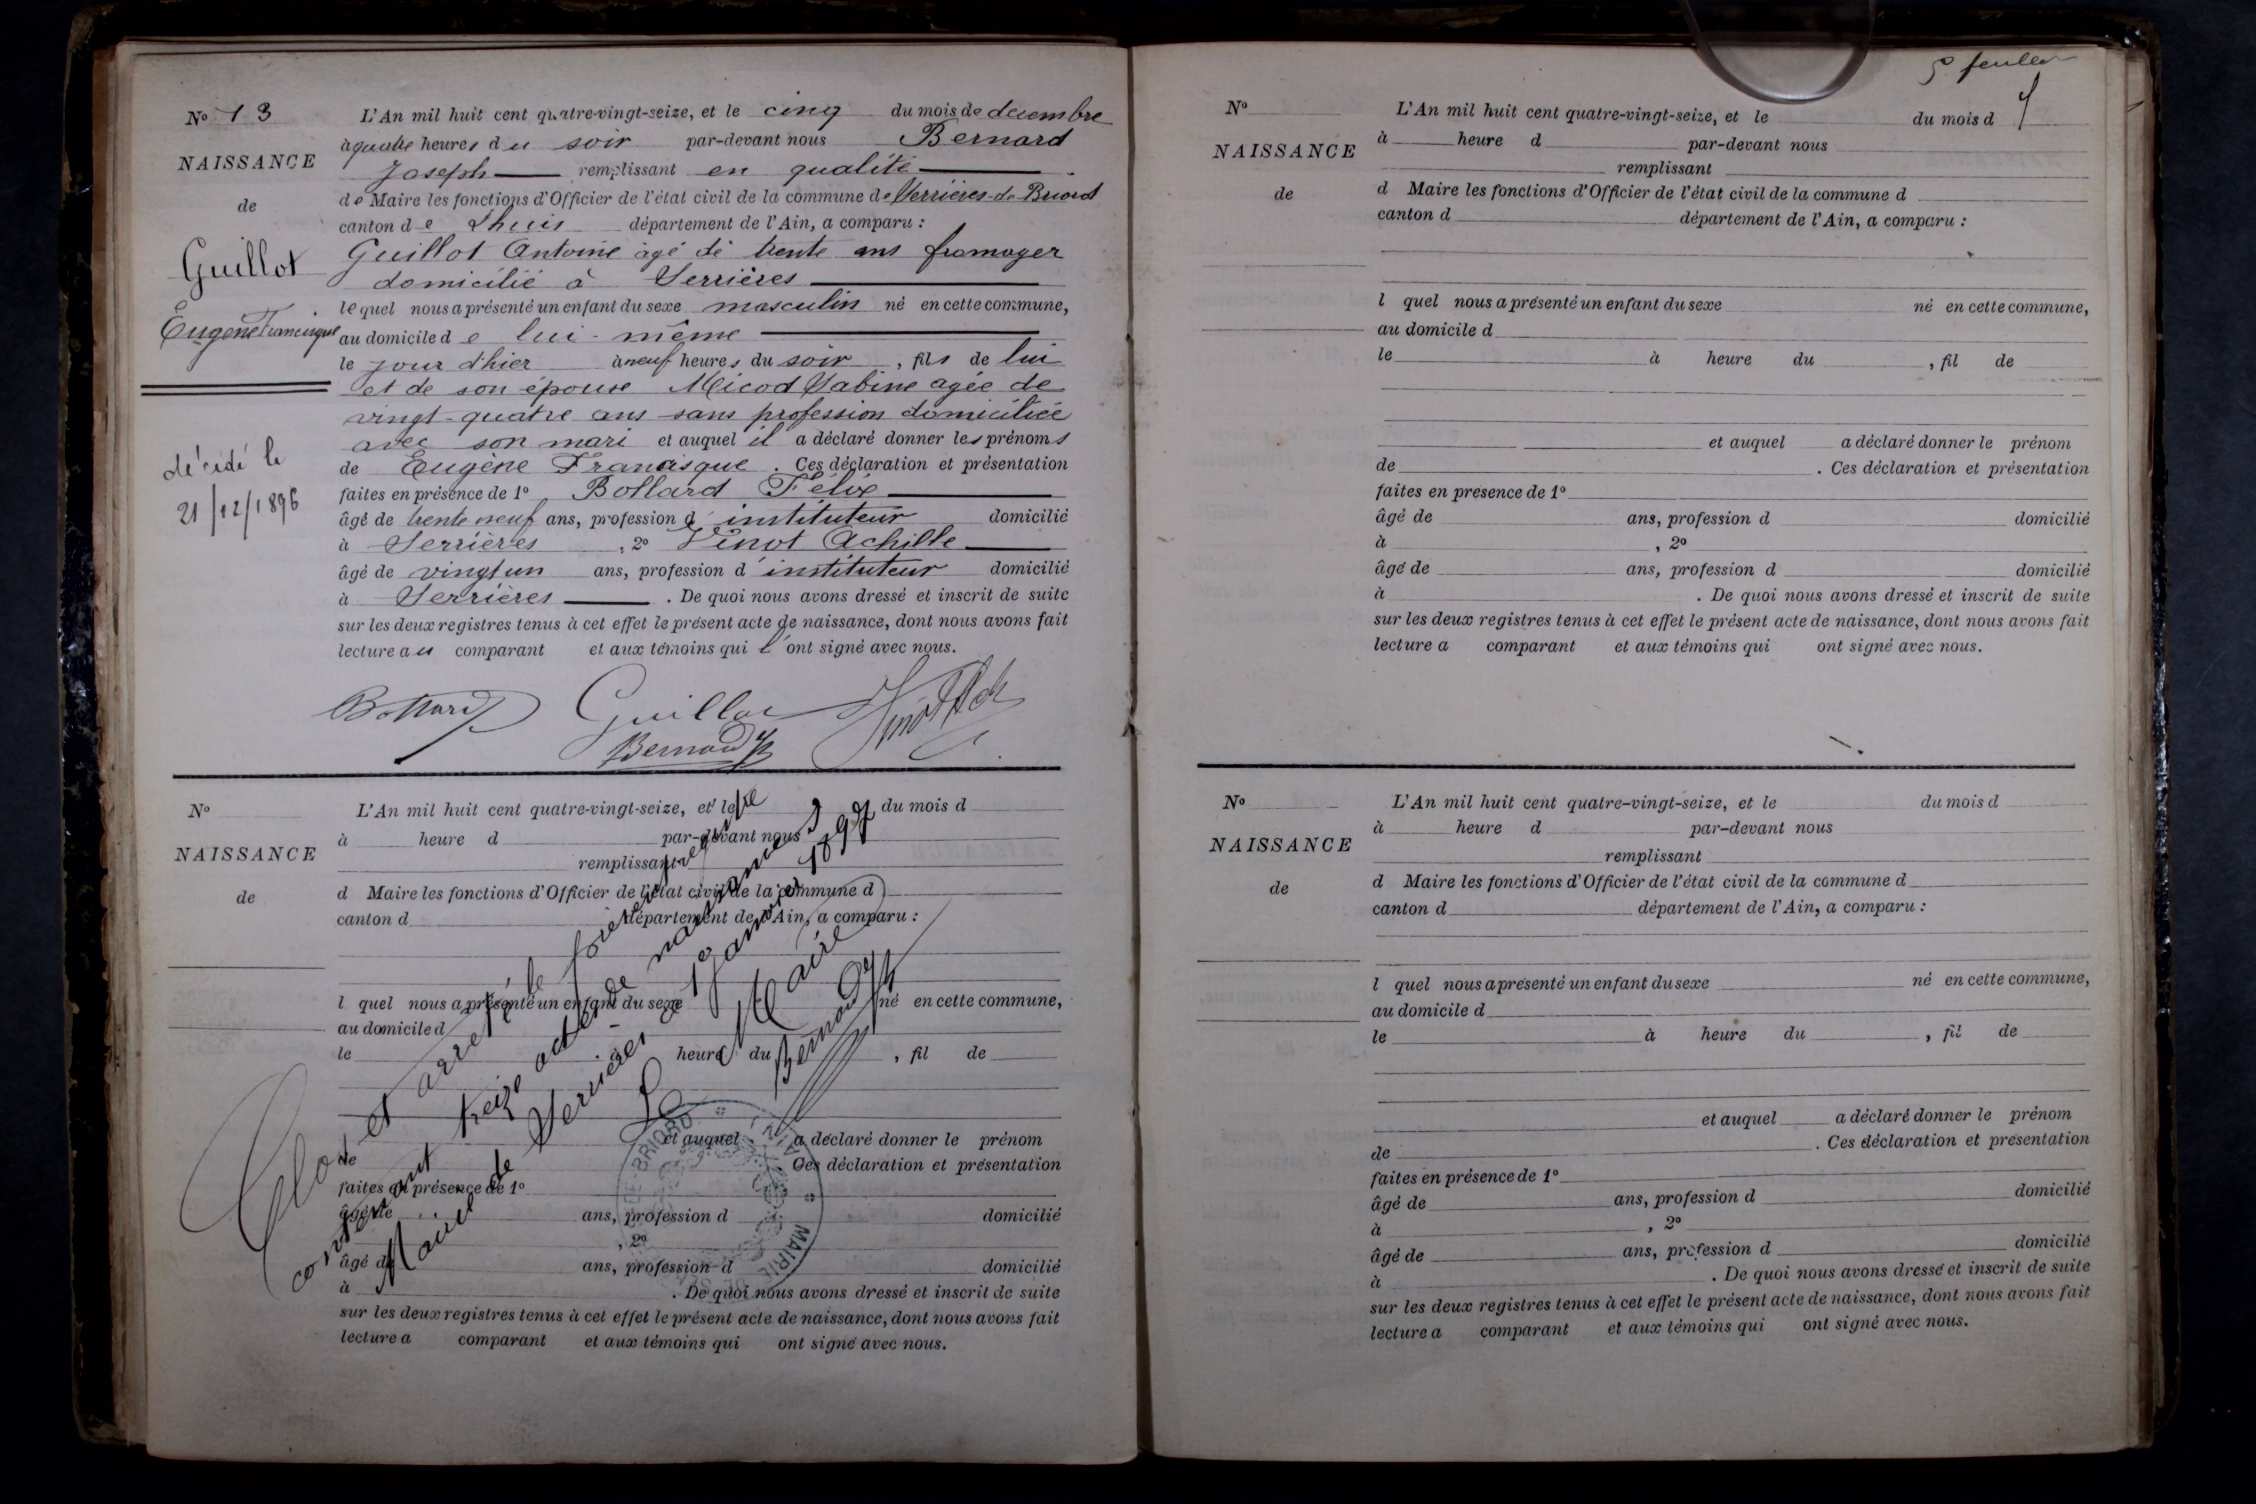 No 13
NAISSANCE
de
Guillot
Eugène Francisque
décédé le
21/12/1896
L'An mil huit cent quatre-vingt-seize, et le cinq du mois de decembre
à quatre heures du soir par-devant nous Bernard
Joseph remplissant en qualité
de Maire les fonctions d'Officier de l'état civil de la commune de Serrières-de-Briord
canton de Lhuis département de l'Ain, a comparu :
Guillot Antoine âgé de trente ans fromager
domicilié à Serrières
lequel nous a présenté un enfant du sexe masculin né en cette commune,
au domicile de lui-même
le jour d'hier à neuf heures du soir, fils de lui
et de son épouse Micod Sabine agée de
vingt-quatre ans sans profession domiciliée
avec son mari et auquel il a déclaré donner les prénoms
de Eugène Francisque. Ces déclaration et présentation
faites en présence de 1º Bollard Félix
âgé de trente neuf ans, profession d'instituteur domicilié
à Serrières, 2º Vinot Achille
âgé de vingt un ans, profession d'instituteur domicilié
à Serrières. De quoi nous avons dressé et inscrit de suite
sur les deux registres tenus à cet effet le présent acte de naissance, dont nous avons fait
lecture au comparant et aux témoins qui l'ont signé avec nous.
Bollard Guillot
Bernard
No
NAISSANCE
de
L'An mil huit cent quatre-vingt-seize, et le du mois d
à heure d par-devant nous
remplissant
d Maire les fonctions d'Officier de l'état civil de la commune d
canton d département de l'Ain, a comparu :
l quel nous a présenté un enfant du sexe né en cette commune,
au domicile d
le à heure du , fil de
et auquel a déclaré donner le prénom
de . Ces déclaration et présentation
faites en présence de 1º
âgé de ans, profession d domicilié
à , 2º
âgé de ans, profession d domicilié
à . De quoi nous avons dressé et inscrit de suite
sur les deux registres tenus à cet effet le présent acte de naissance, dont nous avons fait
lecture a comparant et aux témoins qui ont signé avec nous.
Clos et arrêté le présent registre
contenant treize actes de naissances
Mairie de Serrières le 1º Janvier 1897
Le Maire
Bernard
BRIORD
MAIRIE DE
AIN
5e feuillet
No
NAISSANCE
de
L'An mil huit cent quatre-vingt-seize, et le du mois d
à heure d par-devant nous
remplissant
d Maire les fonctions d'Officier de l'état civil de la commune d
canton d département de l'Ain, a comparu :
l quel nous a présenté un enfant du sexe né en cette commune,
au domicile d
le à heure du , fil de
et auquel a déclaré donner le prénom
de . Ces déclaration et présentation
faites en présence de 1º
âgé de ans, profession d domicilié
à , 2º
âgé de ans, profession d domicilié
à . De quoi nous avons dressé et inscrit de suite
sur les deux registres tenus à cet effet le présent acte de naissance, dont nous avons fait
lecture a comparant et aux témoins qui ont signé avec nous.
No
NAISSANCE
de
L'An mil huit cent quatre-vingt-seize, et le du mois d
à heure d par-devant nous
remplissant
d Maire les fonctions d'Officier de l'état civil de la commune d
canton d département de l'Ain, a comparu :
l quel nous a présenté un enfant du sexe né en cette commune,
au domicile d
le à heure du , fil de
et auquel a déclaré donner le prénom
de . Ces déclaration et présentation
faites en présence de 1º
âgé de ans, profession d domicilié
à , 2º
âgé de ans, profession d domicilié
à . De quoi nous avons dressé et inscrit de suite
sur les deux registres tenus à cet effet le présent acte de naissance, dont nous avons fait
lecture a comparant et aux témoins qui ont signé avec nous.